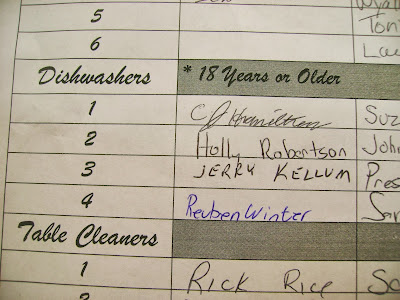 5
Ton
6
Dishwashers * 18 Years or Older
1 CJ Hamilton Suz
2 Holly Robertson John
3 JERRY KELLUM Pres
4 Reuben Winter Sar
Table Cleaners
1 Rick Rice